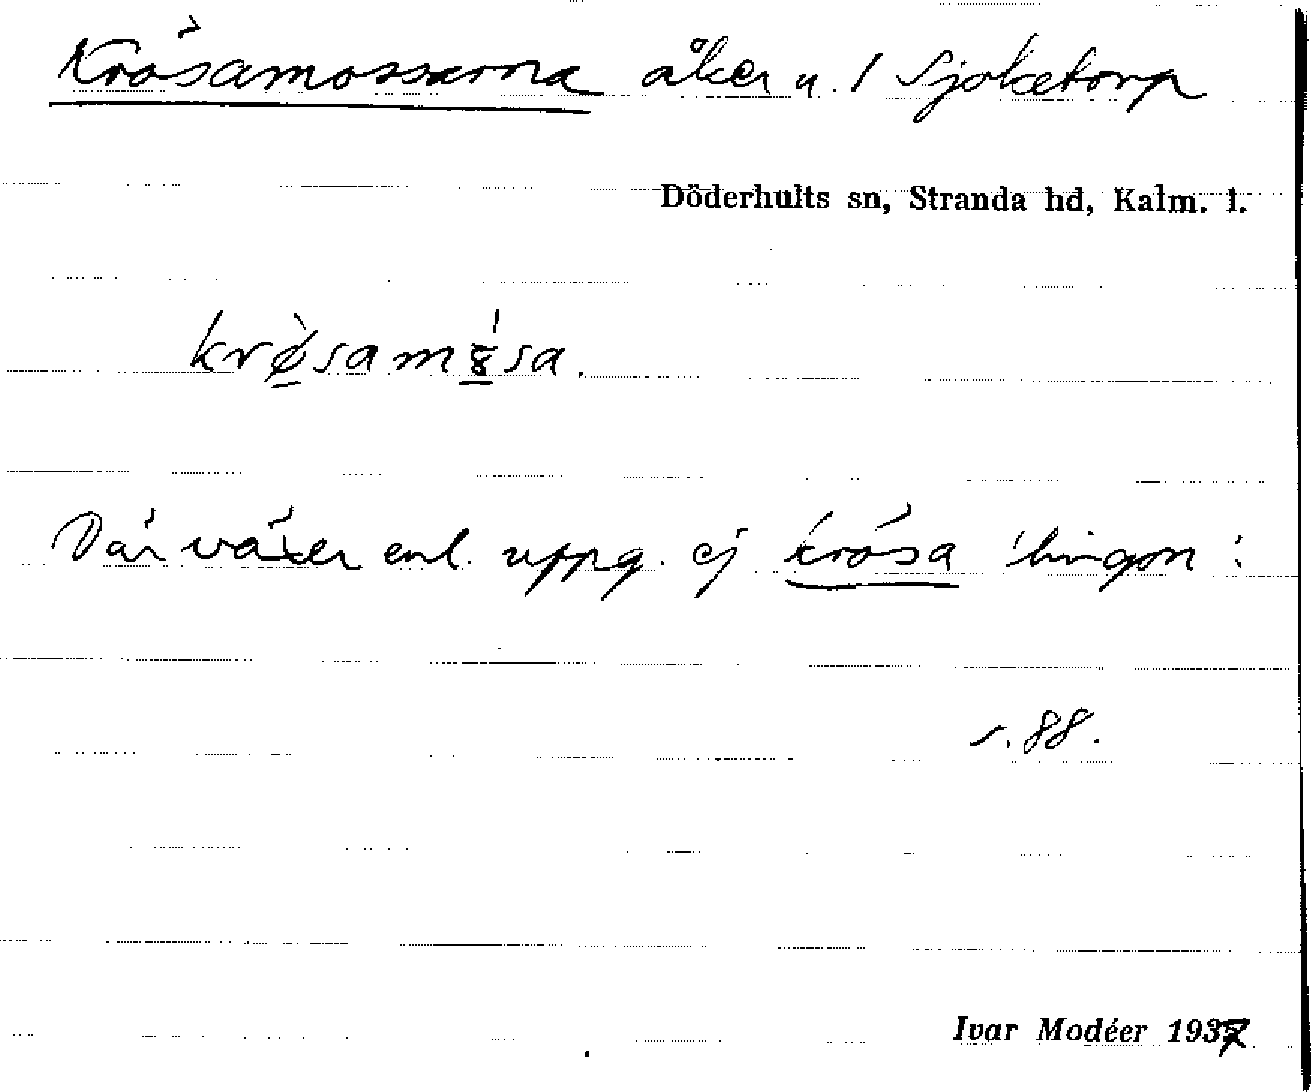 Krösamossarna åker u. 1 Sjöketorp
Döderhults sn, Stranda hd, Kalm. l.
krø̀samȣ́sa.
Där växer enl. uppg. ej krösa 'lingon'.
s. 88.
Ivar Modéer 1937